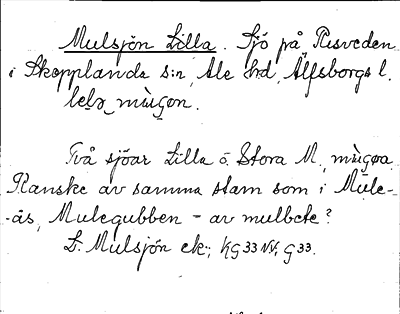 Mulsjön Lilla. Sjö på Risveden
i Skepplanda s:n, Ale hrd, Älfsborgs l.
lela mùgon.
Två sjöar Lilla o. Stora M, mùgoa
Kanske av samma stam som i Mule-
-ås, Mulegubben - av mulbete?
L. Mulsjön ek.; KG33 NV, G33.